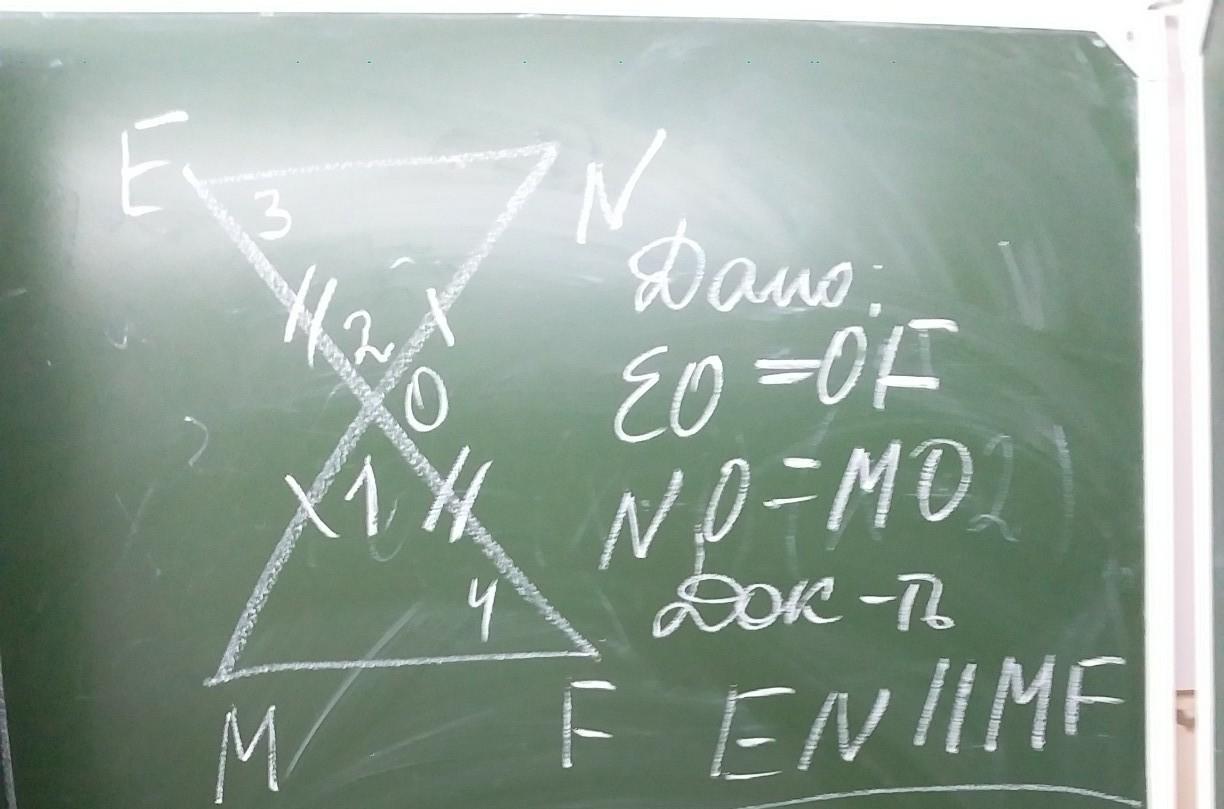 E
N
3
2
O
1
4
M
F
Дано:
EO = OF
NO = MO
Док-ть
EN || MF